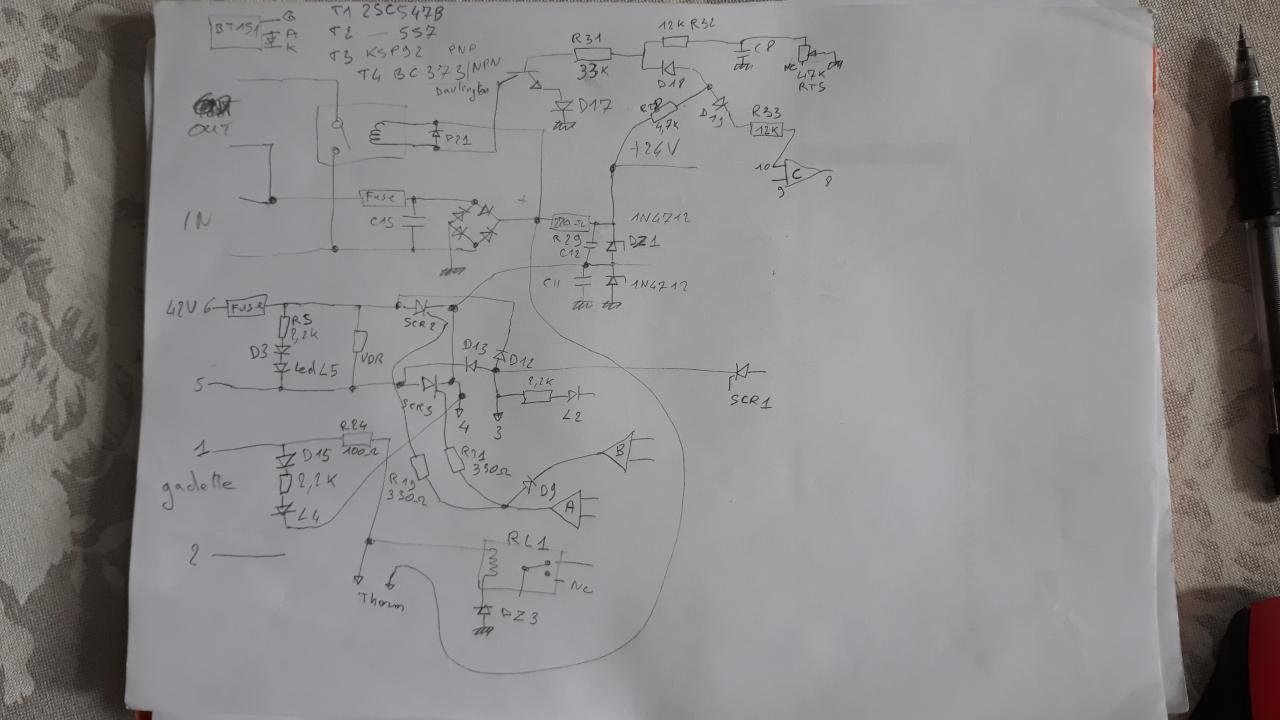 BT151
G
A
K
T1 2SC547B
T2 — 557
T3 KSP92 PNP
T4 BC373/NPN
Darlington
R31
33K
12K R32
C8
NC
47K
RT5
D18
D17
4,7K
D19
R33
12K
10
9
C
8
OUT
D21
+24V
IN
Fuse
C15
+
220Ω
R29
C12
1N4712
DZ1
C11
1N4712
42V 6
Fuse
R5
2,2K
D3
Led L5
VDR
SCR2
5
SCR3
D13
D12
2,2K
L2
4
3
SCR1
1
gachette
R24
100Ω
D15
2,2K
L4
R19
330Ω
R21
330Ω
B
D9
A
2
RL1
NC
Therm
DZ3